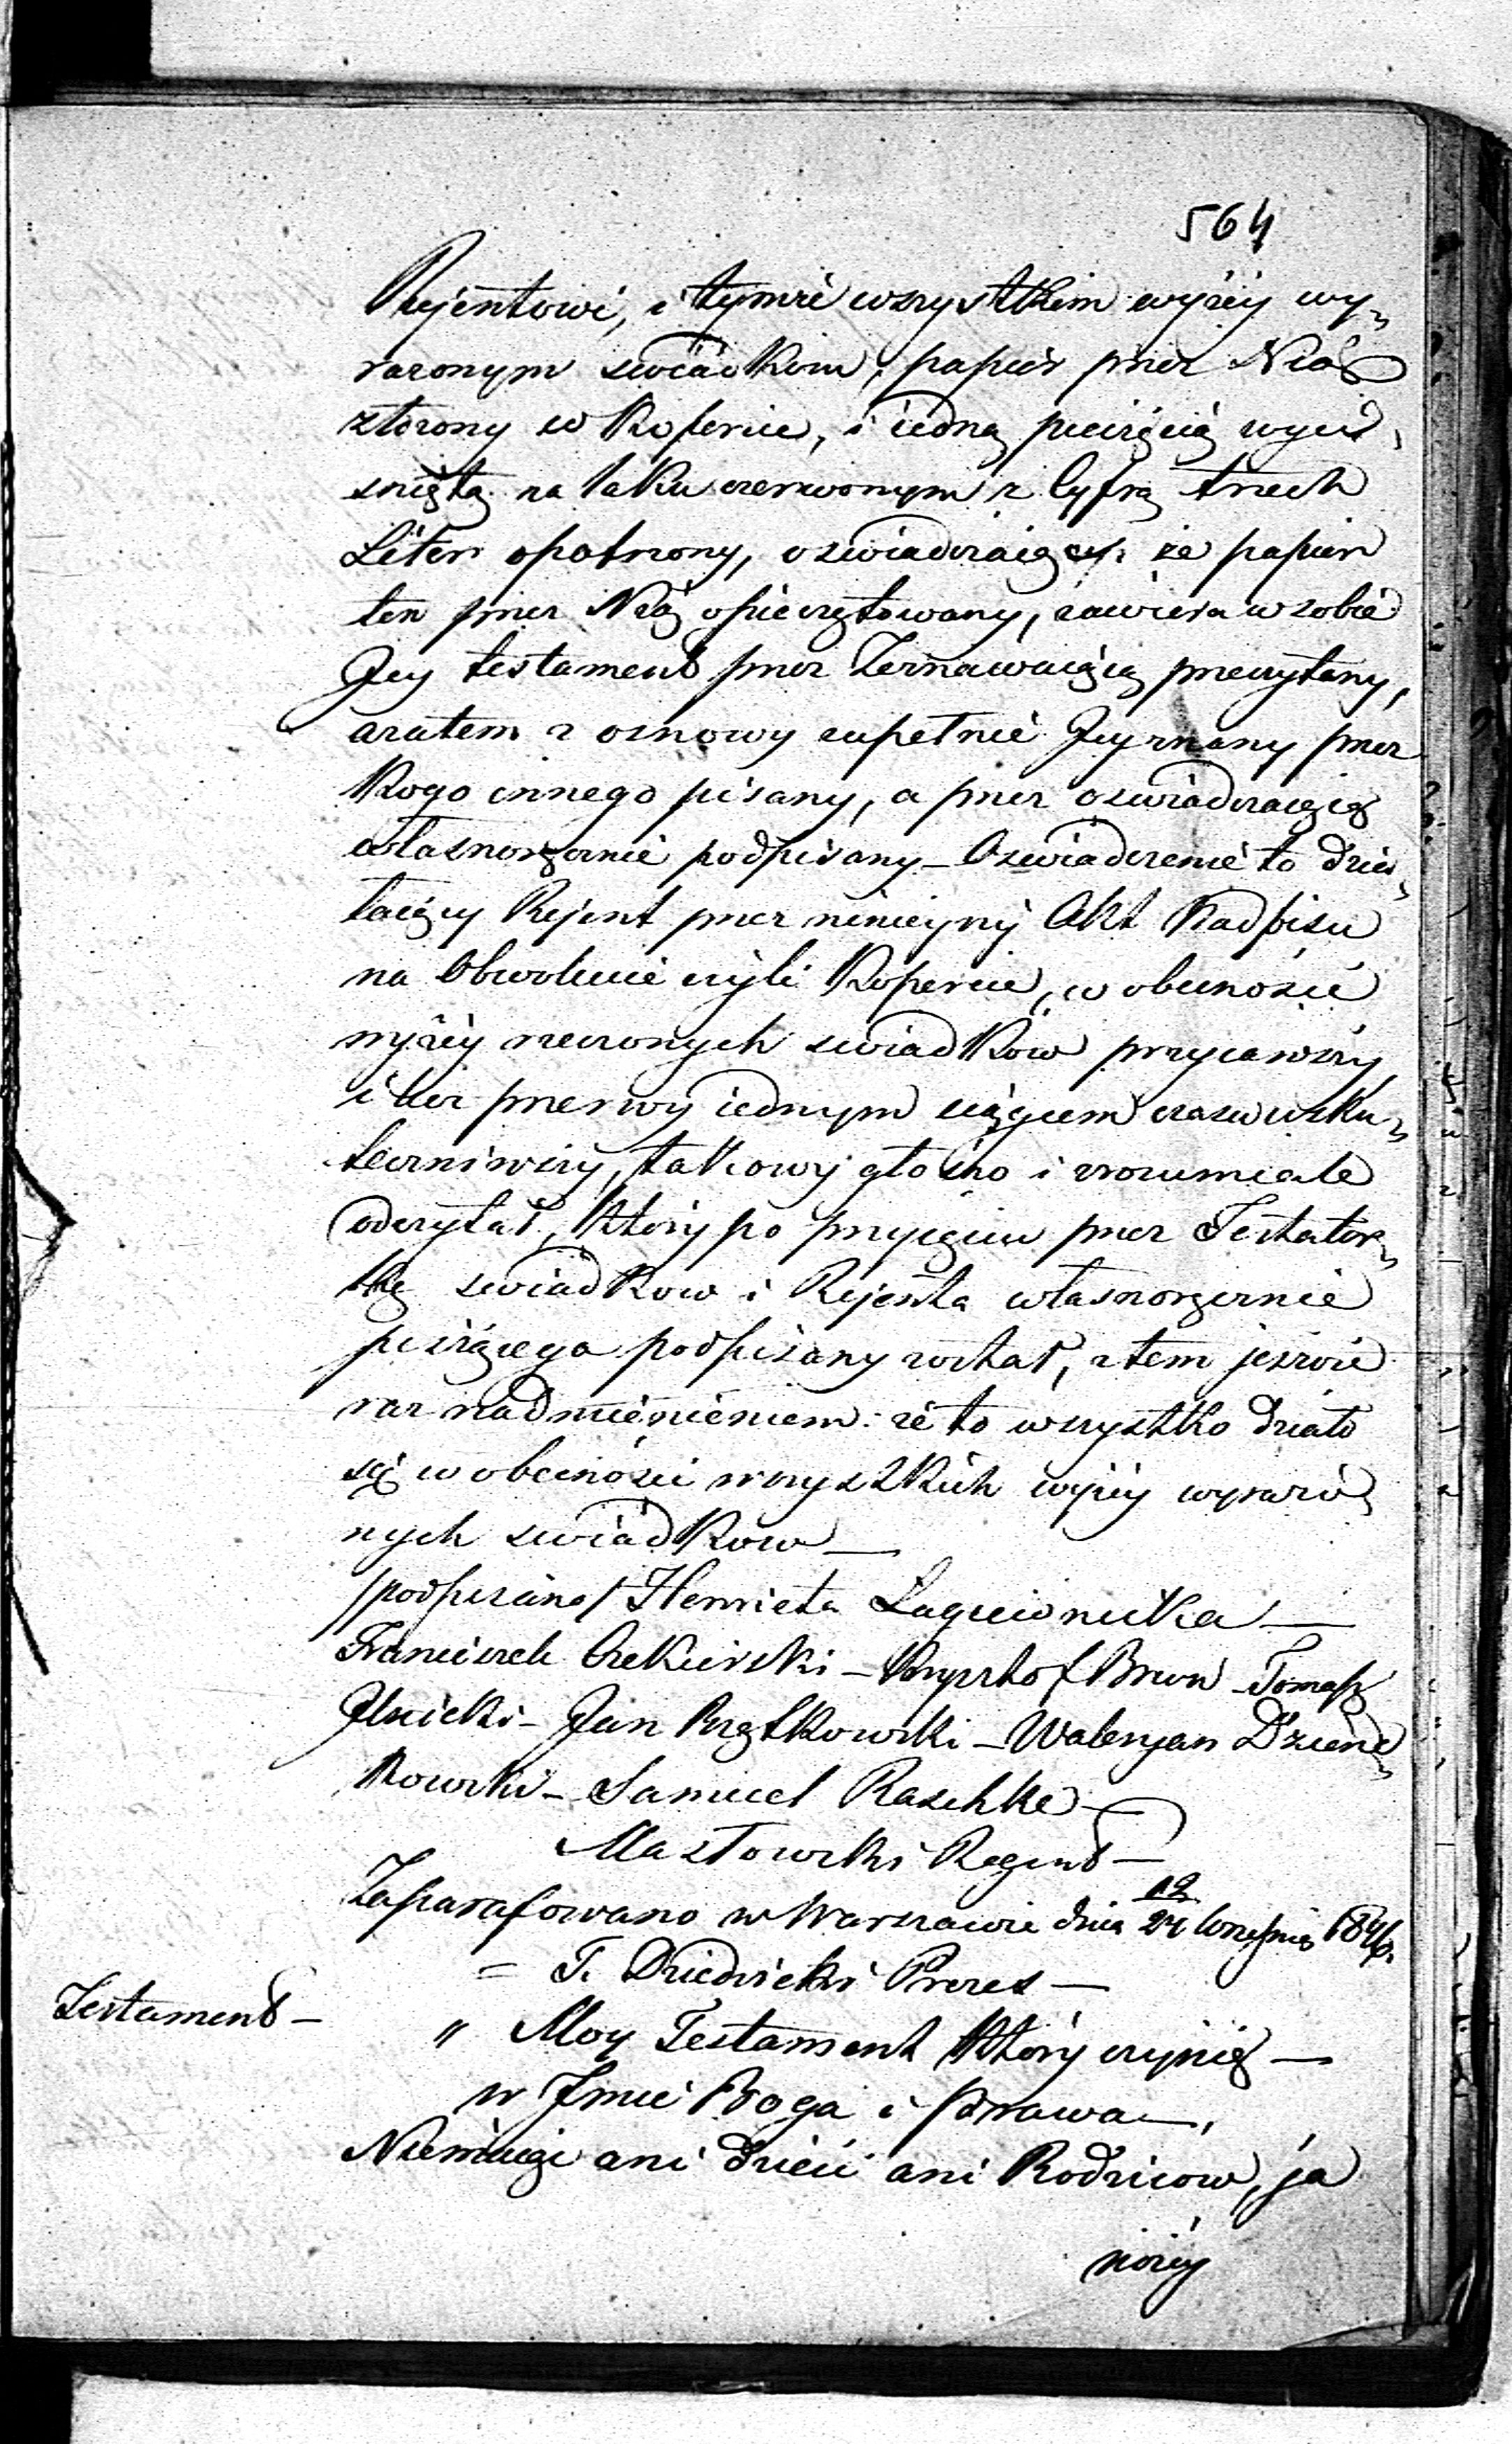 564
Rejentowi, i tymże wszystkim wyżéy wy„
rażonym swiadkom, papiér przez Nią
złożony w Kopercie, i iedną pieczęcią wyci„
sniętą na laku czerwonym z Cyfrą trzech
Liter opatrzony, oswiadczaiącey że papier
ten przez Nią opieczętowany, zawiera w sobie
Jey testament przez Zeznawaiącą przeczytany,
azatem z osnowy zupełnie Jey znany przez
Kogo innego pisany, a przez oswiadczaiącą
własnoręcznie podpisany – Oswiadczenie to dzia„
łaiący Rejent przez ninieyszy Akt Nadpisu
na Obwolucie czyli Kopercie, w obecnosci
wyżéy rzeczonych swiadków przyiąwszy
i bez przerwy iednym ciągiem czasu usku„
teczniwszy, takowy głosno i zrozumiale
odczytał, który po przyięciu przez Testator„
kę swiadkow i Rejenta własnoręcznie
piszącego podpisany został, z tem jeszcze
raz nadmienieniem: że to wszystko działo
się w obecności wszystkich wyżéy wyrażo„
nych swiadkow —
/podpisano/ Henrieta —
Franciszek – Krysztof Brun – Tomasz
Ilnicki – Jan – Waleryan Dzieni„
kowski – Samuel Raschke –
Masłowski Regent —
Zaparafowano w Warszawie dnia 12/24 Września 1846 r.
= T. Dziedzicki Prezes —
Testament –
„ Moy Testament który czynię —
w Imie Boga i Prawa —,
Niemaiąc ani dzieci ani Rodzicow, ja
niżéy